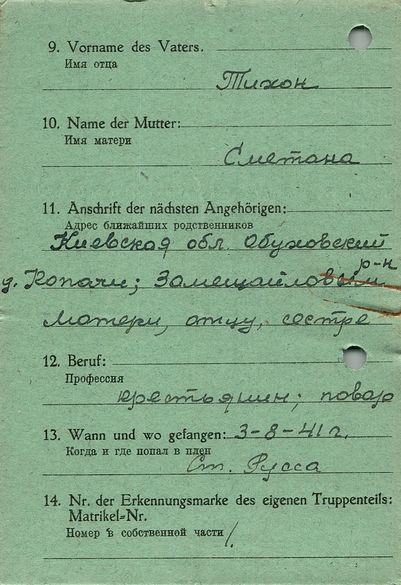 9. Vorname des Vaters.
Имя отца
Тихон
10. Name der Mutter:
Имя матери
Сметана
11. Anschrift der nächsten Angehörigen:
Адрес ближайших родственников
Киевская обл. Обуховский
р-н
д. Копачи; Замещайловым
матери, отцу, сестре
12. Beruf:
Профессия
крестьянин; повар
13. Wann und wo gefangen: 3-8-41 г.
Когда и где попал в плен
Ст. Русса
14. Nr. der Erkennungsmarke des eigenen Truppenteils:
Matrikel=Nr.
Номер в собственной части